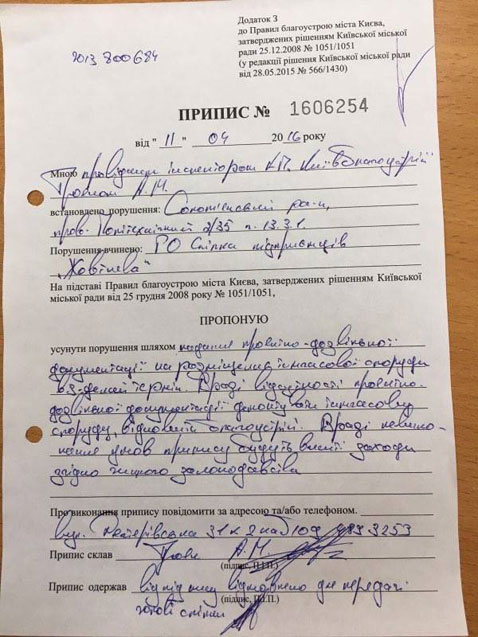 Додаток 3
до Правил благоустрою міста Києва,
затверджених рішенням Київської міської
ради 25.12.2008 № 1051/1051
(у редакції рішення Київської міської ради
від 28.05.2015 № 566/1430)
2013 800684
ПРИПИС № 1606254
від " 11 " 04 2016 року
Мною провідним інспектором КП "Київблагоустрій"
А.М.
встановлено порушення: Солом'янський р-н,
пров. Політехнічний 3/35 п. 13.3.1.
Порушення вчинено: РО Спілка підприємців
"Жовтнева"
На підставі Правил благоустрою міста Києва, затверджених рішенням Київської
міської ради від 25 грудня 2008 року № 1051/1051,
ПРОПОНУЮ
усунути порушення шляхом надання проектно-дозвільної
документації на розміщення тимчасової споруди
в 3-денний термін. В разі відсутності проектно-
дозвільної документації демонтувати тимчасову
споруду, відновити благоустрій. В разі невико-
нання умов припису будуть вжиті заходи
згідно чинного законодавства
Про виконання припису повідомити за адресою та/або телефоном.
вул. Дегтярівська 31 к 2 каб 109 3253
Припис склав А.М.
(підпис, П.І.П.)
Припис одержав від підпису відмовлено для передачі
(підпис, П.І.П.)
голові спілки